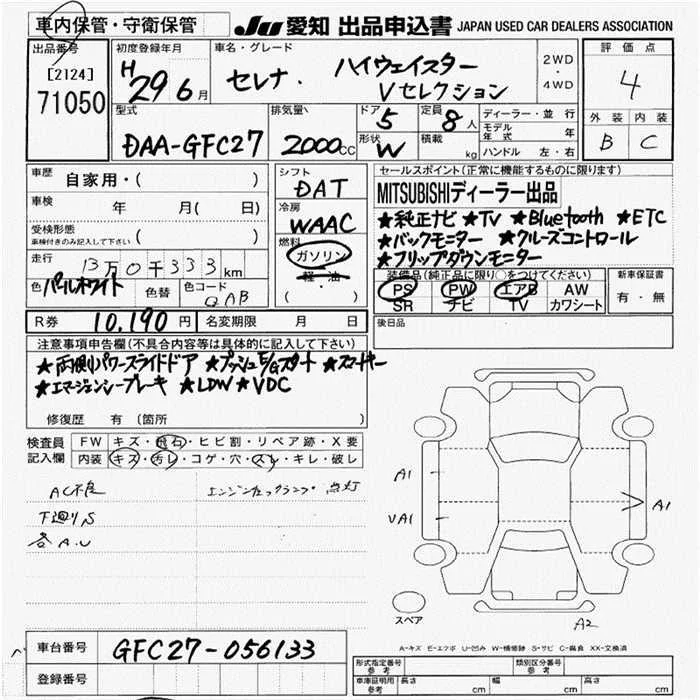 車内保管・守衛保管 JU 愛知 出品申込書 JAPAN USED CAR DEALERS ASSOCIATION
出品番号 初度登録年月 車名・グレード 評価点
[2124] H 29 6 月 セレナ. ハイウェイスター Vセレクション 2WD・4WD 4
71050
型式 排気量 ドア 5 定員 8 人 ディーラー・並行 外装 内装
DAA-GFC27 2000 CC 形状 W 積載 kg モデル年式 年 B C
ハンドル 左・右
車歴 自家用・( ) シフト DAT セールスポイント(正常に機能するものに限ります)
車検 年 月( 日) 冷房 WAAC MITSUBISHIディーラー出品
受検形態 ( ) ★純正ナビ ★TV ★Bluetooth ★ETC
車検付きのみ記入して下さい 燃料 ガソリン ★バックモニター ★クルーズコントロール
走行 13万0千333 km 軽・油 ★フリップダウンモニター
色 パールホワイト 色替 色コード QAB ( )
装備品(純正品に限り○をつけてください) 新車保証書
PS PW エアB AW 有・無
SR ナビ TV カワシート
R券 10,190 円 名変期限 月 日 後日品
注意事項申告欄(不具合内容等は具体的に記入して下さい)
★両側パワースライドドア ★プッシュE/Gスタート ★スマートキー
★エマージェンシーブレーキ ★LDW ★VDC
修復歴 有 (箇所 )
検査員記入欄 FW キズ・飛石・ヒビ割・リペア跡・X要
内装 キズ・汚レ・コゲ・穴・スレ・キレ・破レ
AC不良 エンジンチェックランプ 点灯
下廻りS
各A.U
A1
VA1
A1
スペア
A2
A-キズ E-エクボ U-凹み W-補修跡 S-サビ C-腐食 XX-交換済
車台番号 GFC27-056133
登録番号
形式指定番号 参考 類別区分番号 参考
車庫証明用 参考 長さ cm 幅 cm 高さ cm